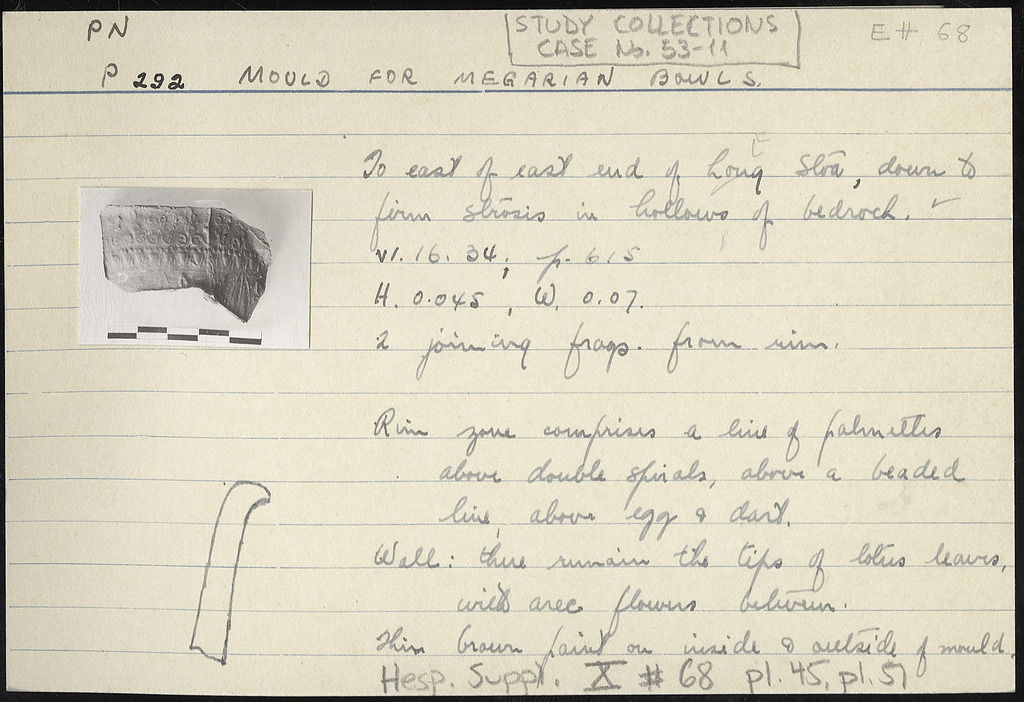 PN
STUDY COLLECTIONS
CASE No. 53-11
E# 68
P 292 MOULD FOR MEGARIAN BOWLS.
To east of east end of Long Stoa, down to
firm strosis in hollows of bedrock. ✓
VI. 16. 34; p. 615
H. 0.045, W. 0.07.
2 joining frags. from rim.
Rim zone comprises a line of palmettes
above double spirals, above a beaded
line, above egg & dart.
Wall: there remain the tips of lotus leaves,
with flowers between.
Thin brown paint on inside & outside of mould.
Hesp. Suppl. X # 68 pl. 45, pl. 51